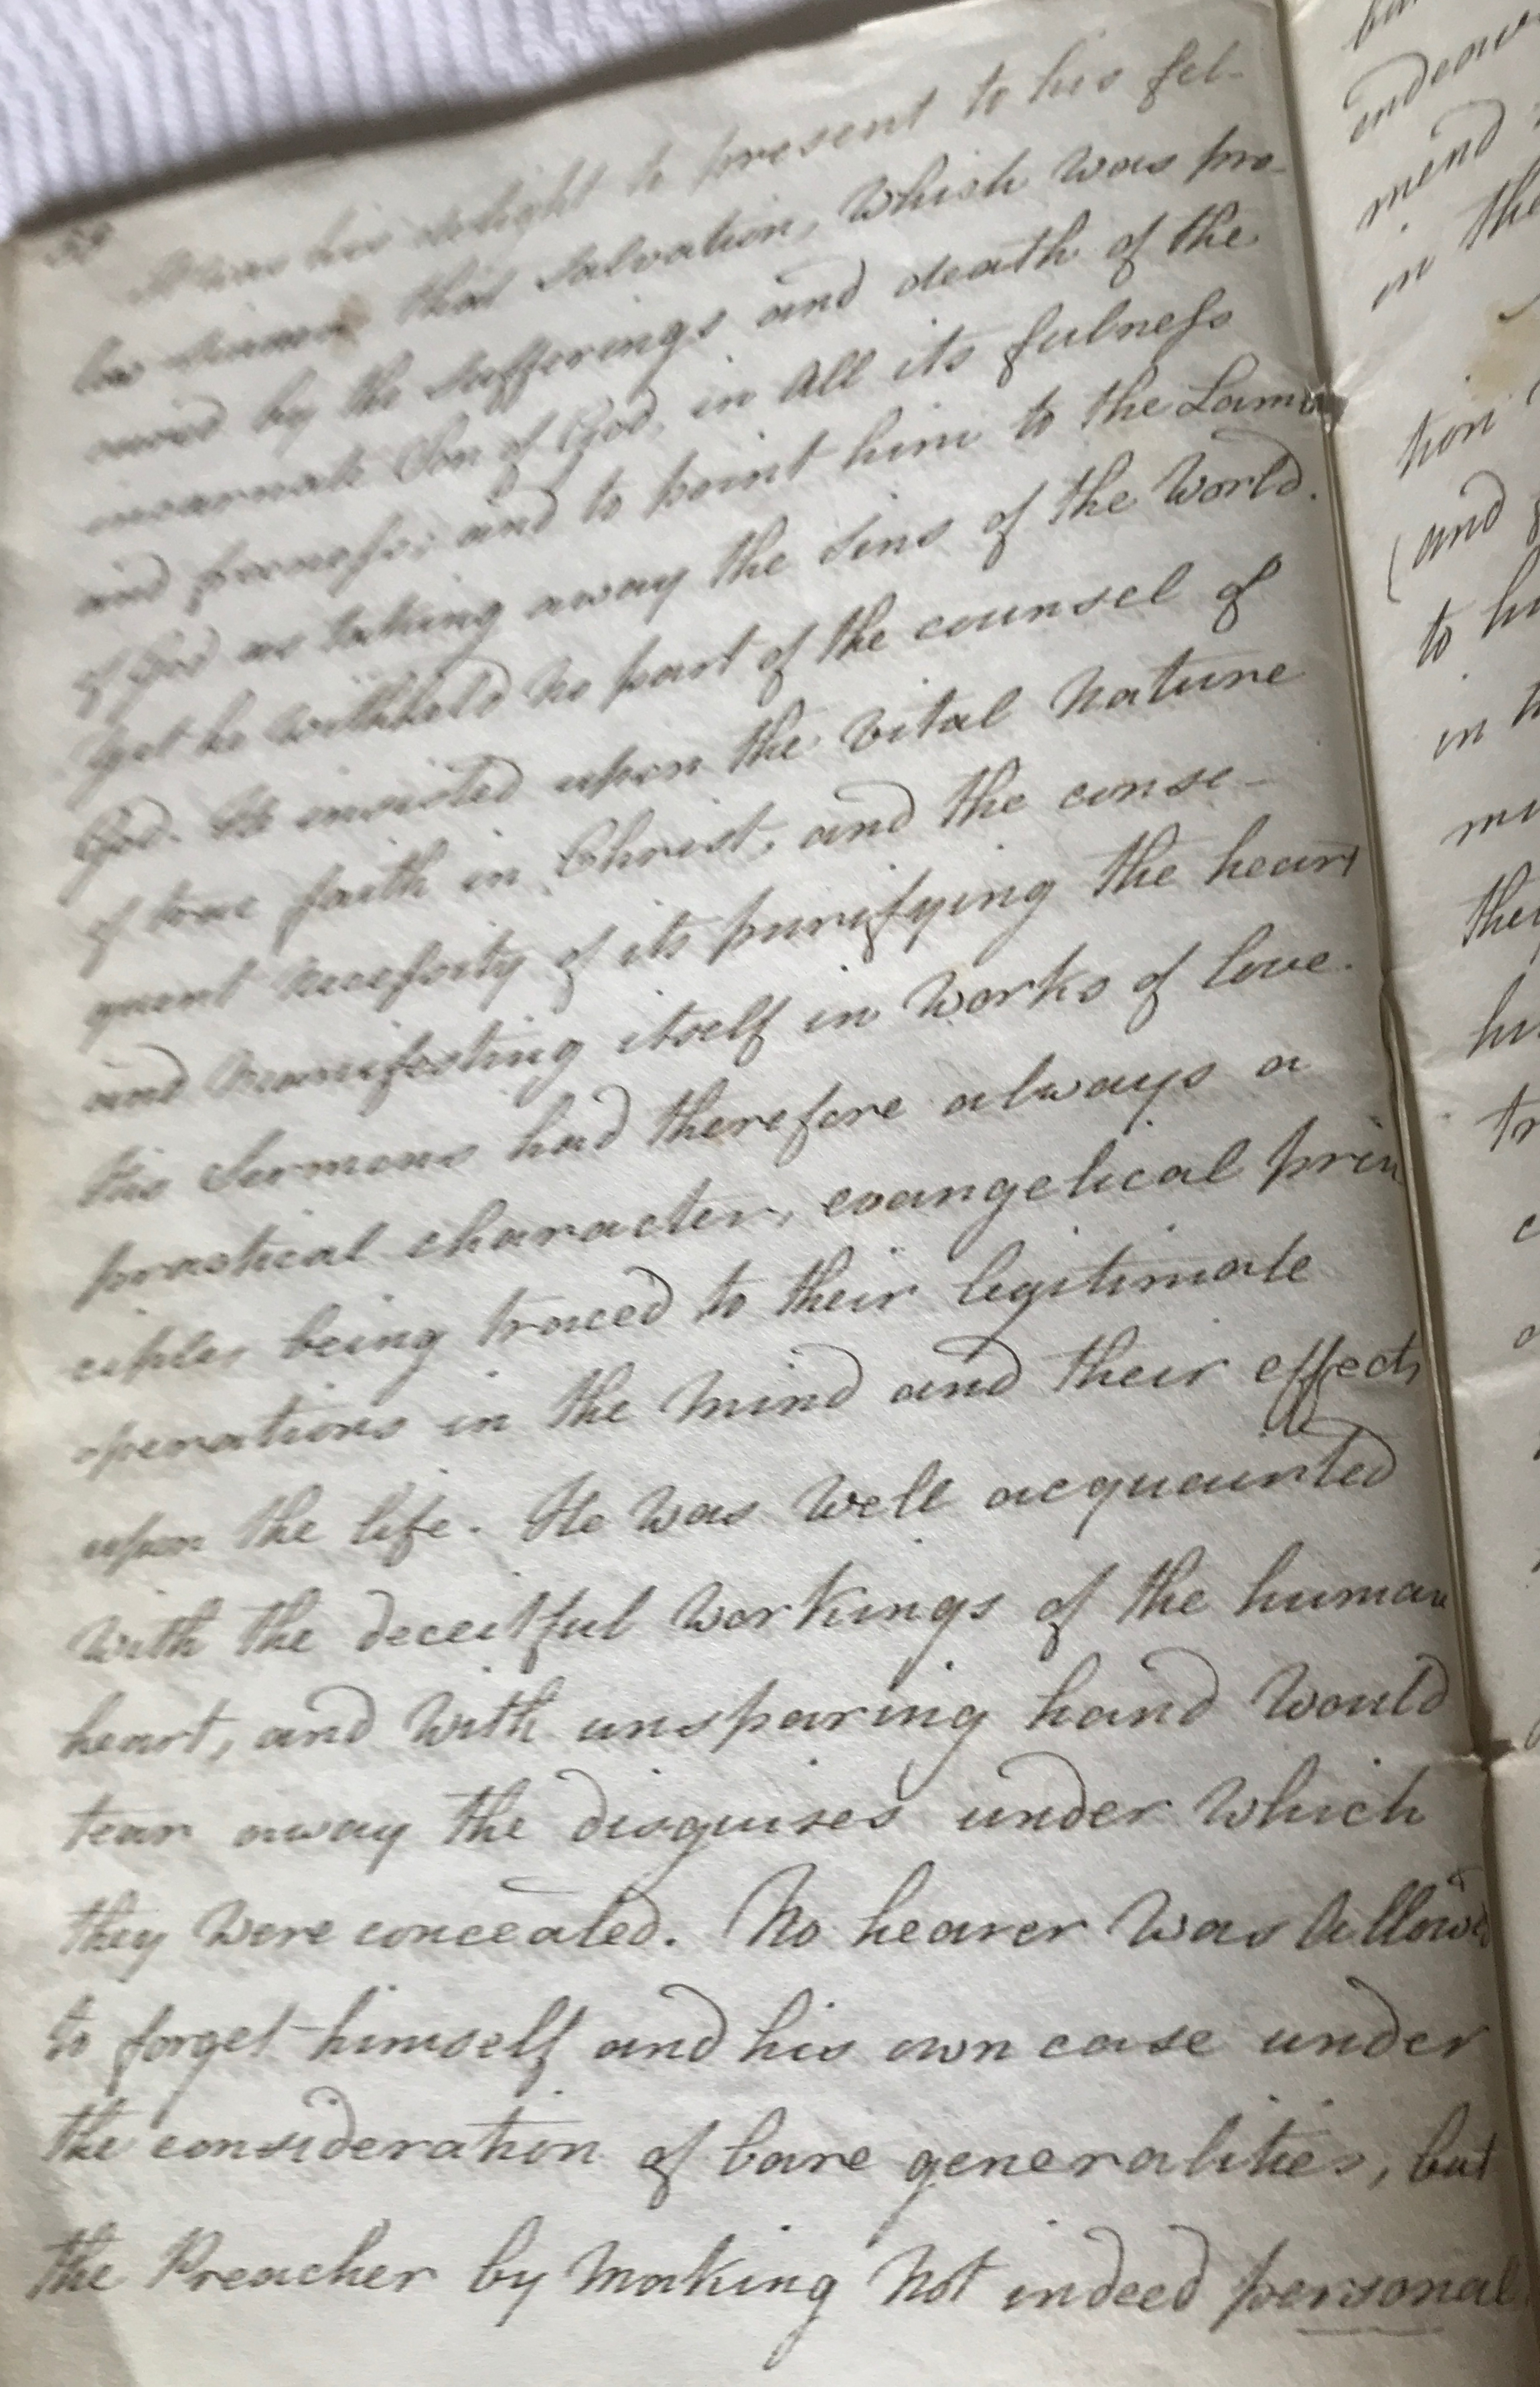 It was his delight to present to his fel-
low sinners that Salvation, which was pro-
cured by the sufferings and death of the
incarnate Son of God, in all its fulness
and freeness; and to point him to the Lamb
of God as taking away the sins of the World.
Yet he withheld no part of the counsel of
God. He insisted upon the vital nature
of true faith in Christ, and the conse-
quent necessity of its purifying the heart
and manifesting itself in works of love.
His Sermons had therefore always a
practical character, evangelical prin
ciples being traced to their legitimate
operations in the mind and their effects
upon the life. He was well acquainted
with the deceitful workings of the human
heart, and with unsparing hand would
tear away the disguises under which
they were concealed. No hearer was allowed
to forget himself and his own case under
the consideration of bare generalities, but
the Preacher by making not indeed personal
endeavo
mend
in the
tion
(and
to hi
in
mi
the
hi
tr